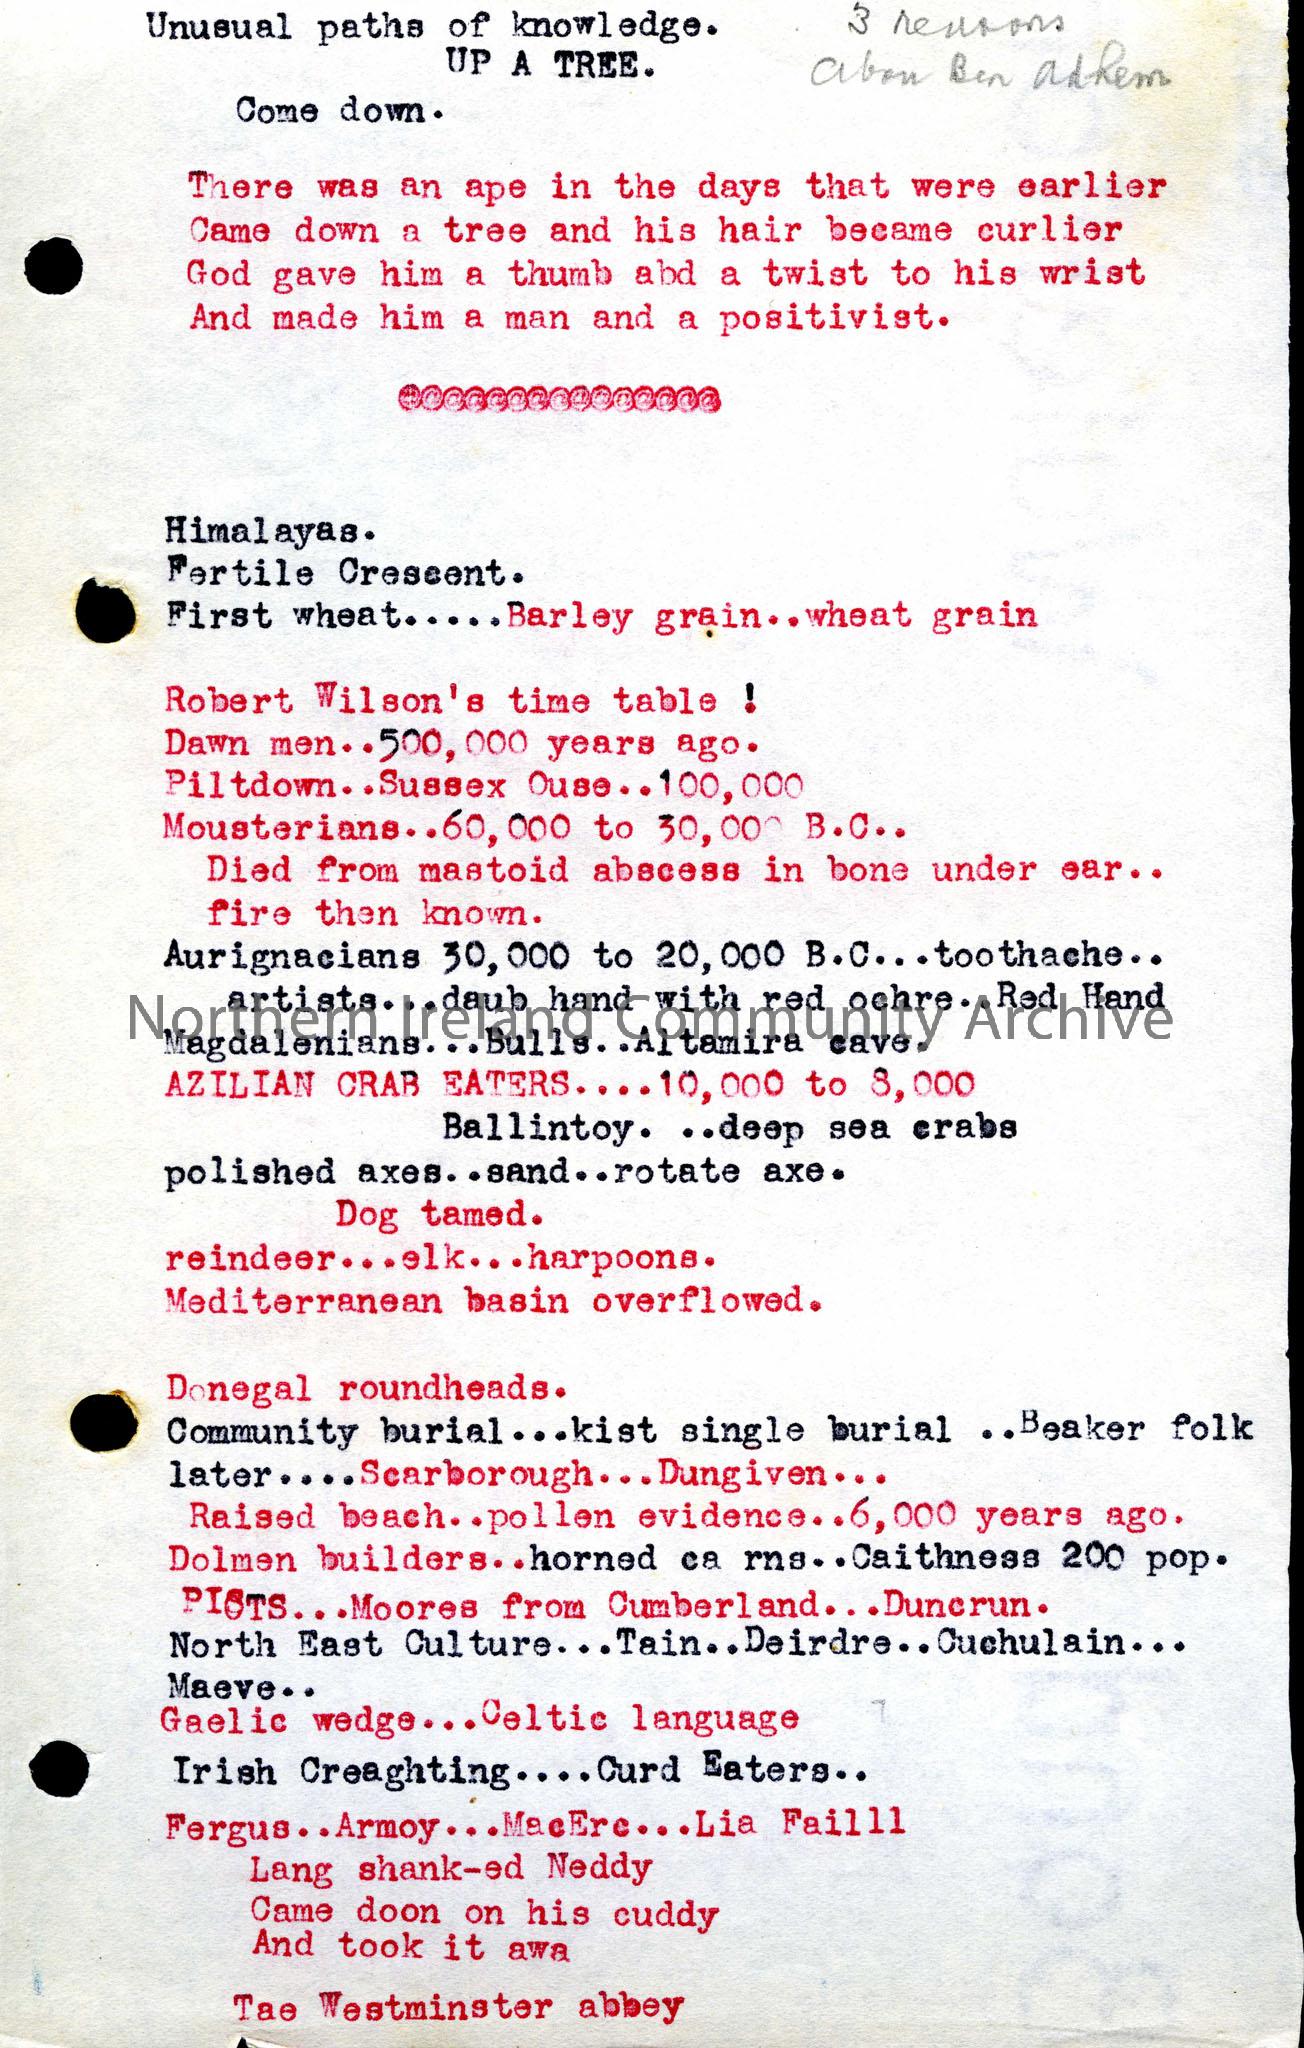 Unusual paths of knowledge.
UP A TREE.
3 reasons
Abou Ben Adhem
Come down.
There was an ape in the days that were earlier
Came down a tree and his hair became curlier
God gave him a thumb abd a twist to his wrist
And made him a man and a positivist.
@@@@@@@@@@@@@@@
Himalayas.
Fertile Crescent.
First wheat.....Barley grain..wheat grain
Robert Wilson's time table !
Dawn men..500,000 years ago.
Piltdown..Sussex Ouse..100,000
Mousterians..60,000 to 30,000 B.C..
Died from mastoid abscess in bone under ear..
fire then known.
Aurignacians 30,000 to 20,000 B.C...toothache..
artists...daub hand with red ochre..Red Hand
Northern Ireland Community Archive
Magdalenians...Bulls..Altamira cave.
AZILIAN CRAB EATERS....10,000 to 8,000
Ballintoy. ..deep sea crabs
polished axes..sand..rotate axe.
Dog tamed.
reindeer...elk...harpoons.
Mediterranean basin overflowed.
Donegal roundheads.
Community burial...kist single burial ..Beaker folk
later....Scarborough...Dungiven...
Raised beach..pollen evidence..6,000 years ago.
Dolmen builders..horned ca rns..Caithness 200 pop.
PICTS...Moores from Cumberland...Duncrun.
North East Culture...Tain..Deirdre..Cuchulain...
Maeve..
Gaelic wedge...Celtic language
Irish Creaghting....Curd Eaters..
Fergus..Armoy...MacErc...Lia Failll
Lang shank-ed Neddy
Came doon on his cuddy
And took it awa
Tae Westminster abbey